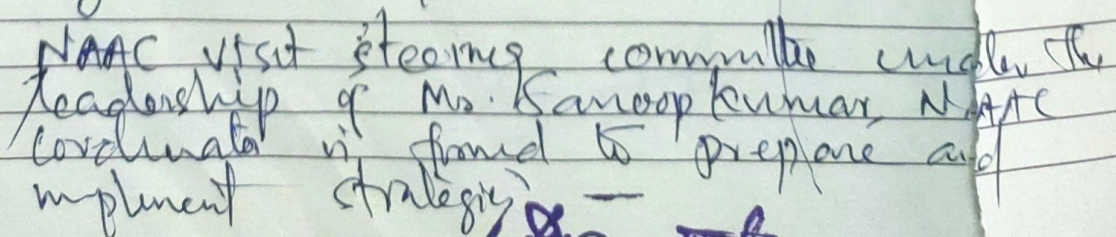 NAAC visit steering committie under the
leadership of Mr. Sanoop kumar, NAAC
coordinator is formed to prepare and
implement strategies —